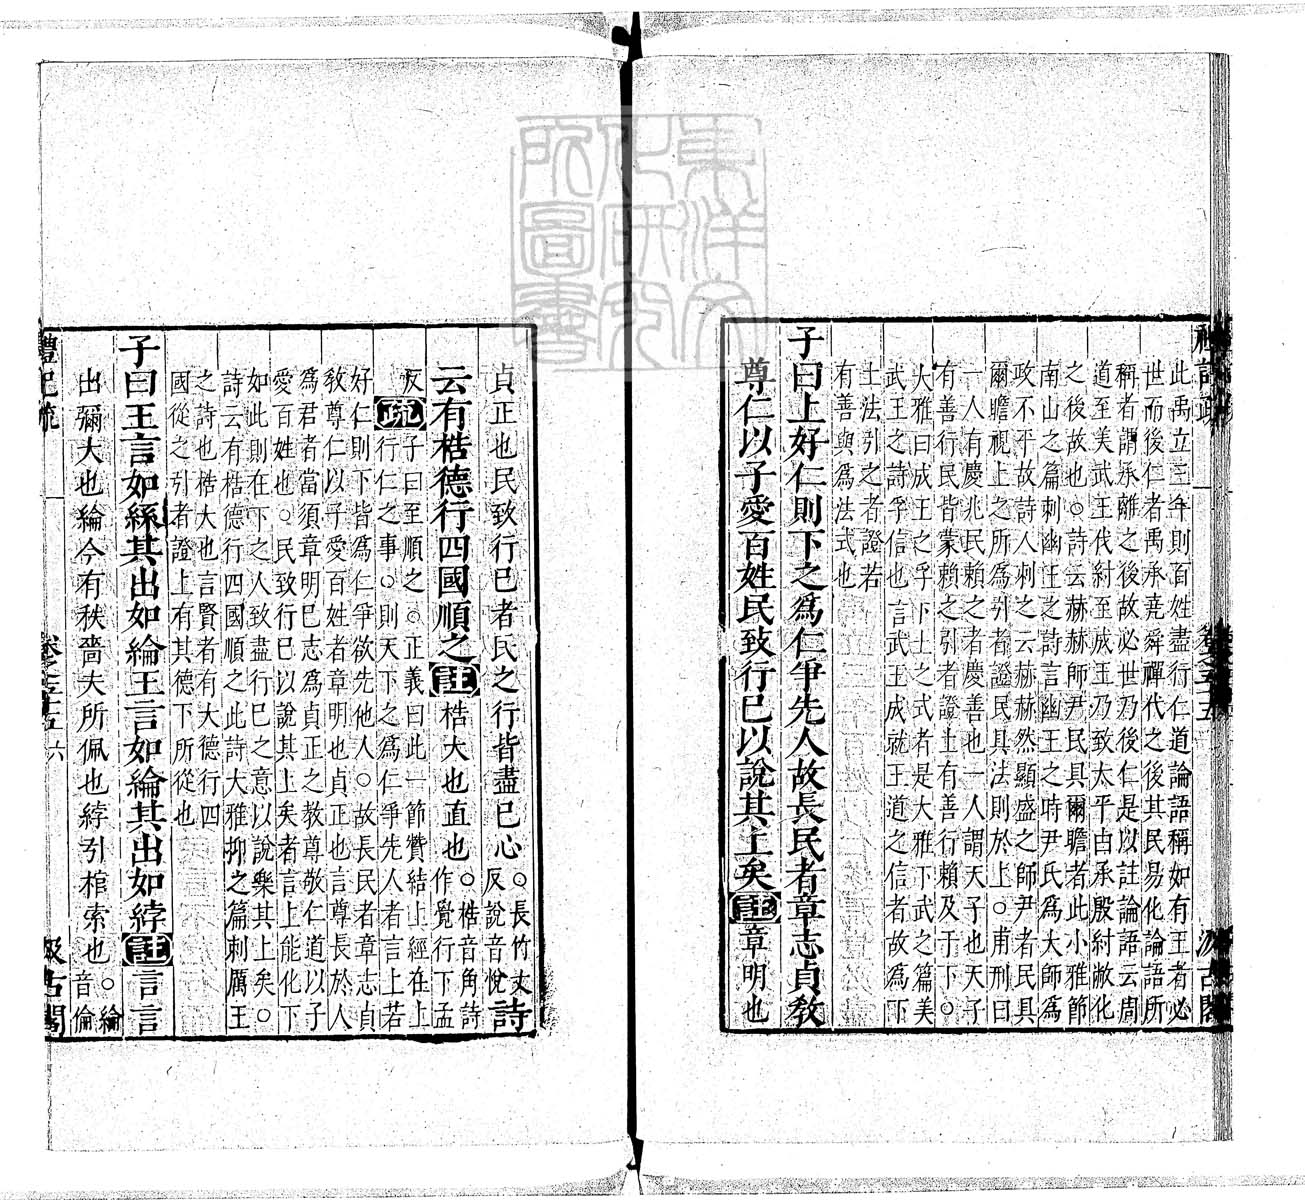 禮記疏 卷之五十五 汲古閣
此禹立三年則百姓盡行仁道論語稱如有王者必
世而後仁者禹承堯舜禪代之後其民易化論語所
稱者謂承離之後故必世乃後仁是以註論語云周
道至美武王伐紂至成王乃致太平由承殷紂敝化
之後故也○詩云赫赫師尹民具爾瞻者此小雅節
南山之篇刺幽王之詩言幽王之時尹氏爲大師爲
政不平故詩人刺之云赫赫然顯盛之師尹者民具
爾瞻視上之所爲引者證民具法則於上○甫刑曰
一人有慶兆民賴之者慶善也一人謂天子也天子
有善行民皆蒙賴之引者證上有善行賴及于下○
大雅曰成王之孚下土之式者是大雅下武之篇美
武王之詩孚信也言武王成就王道之信者故爲下
土法引之者證若
有善與爲法式也
子曰上好仁則下之爲仁爭先人故長民者章志貞教
尊仁以子愛百姓民致行已以說其上矣註章明也
貞正也民致行已者民之行皆盡已心○長竹丈反說音悅詩
云有梏德行四國順之註梏大也直也○梏音角詩作覺行下孟
反疏子曰至順之○正義曰此一節贊結上經在上
行仁之事○則天下之爲仁爭先人者言上若
好仁則下皆爲仁爭欲先他人○故長民者章志貞
教尊仁以子愛百姓者章明也貞正也言尊長於人
爲君者當須章明已志爲貞正之教尊敬仁道以子
愛百姓也○民致行已以說其上矣者言上能化下
如此則在下之人致盡行已之意以說樂其上矣○
詩云有梏德行四國順之此詩大雅抑之篇刺厲王
之詩也梏大也言賢者有大德行四
國從之引者證上有其德下所從也
子曰王言如絲其出如綸王言如綸其出如綍註言言
出彌大也綸今有秩嗇夫所佩也綍引棺索也○綸音倫
禮記疏 卷之五十五 六 汲古閣
東洋文
化研究
所圖書